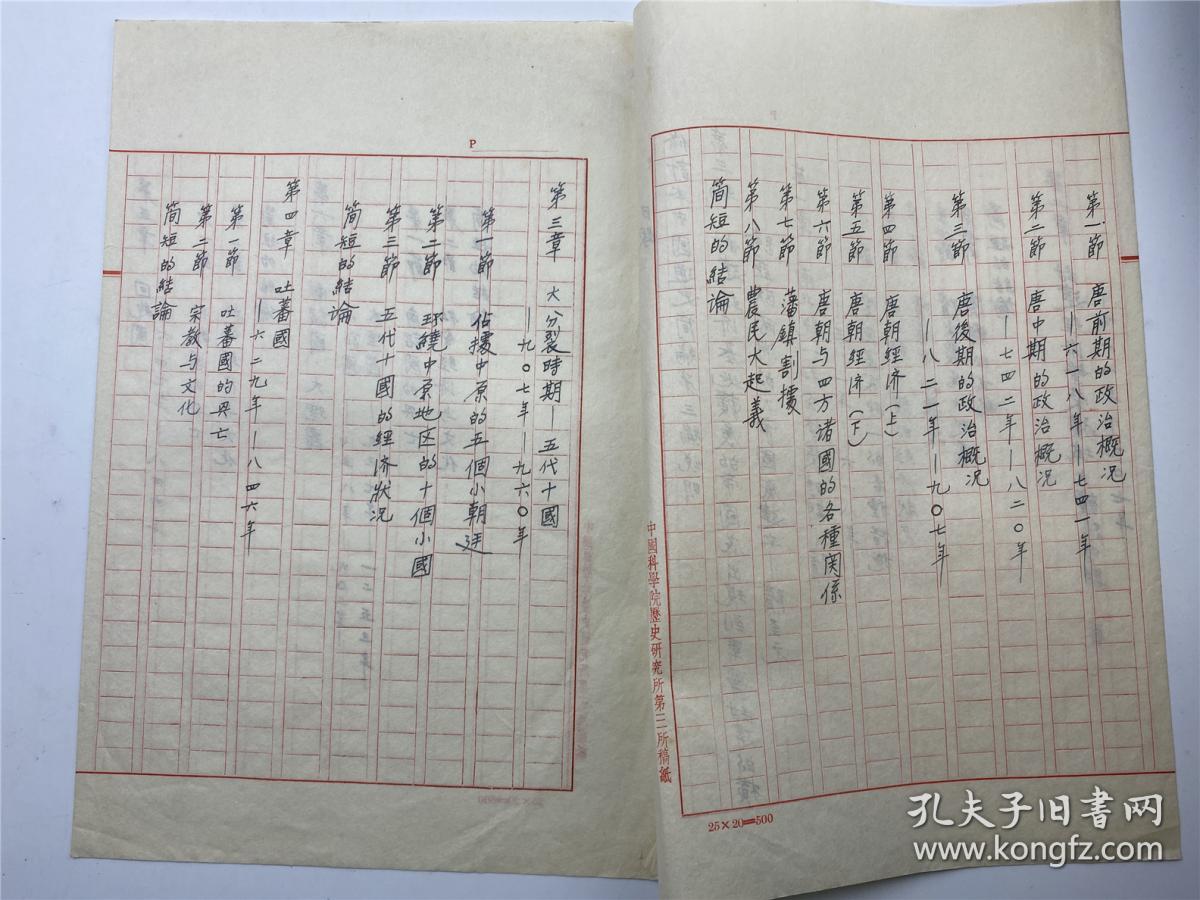 第一節　唐前期的政治概况
——六一八年——七四一年
第二節　唐中期的政治概况
——七四二年——八二〇年
第三節　唐後期的政治概况
——八二一年——九〇七年
第四節　唐朝經济（上）
第五節　唐朝經济（下）
第六節　唐朝与四方诸國的各種関係
第七節　藩鎮割據
第八節　農民大起義
简短的結論
中國科學院歷史研究所第三所稿紙
25×20=500
P
第三章　大分裂時期——五代十國
——九〇七年——九六〇年
第一節　佔據中原的五個小朝廷
第二節　环繞中原地区的十個小國
第三節　五代十國的經济狀况
简短的結論
第四章　吐蕃國
——六二九年——八四六年
第一節　吐蕃國的興亡
第二節　宗教与文化
简短的結論
孔夫子旧书网
www.kongfz.com